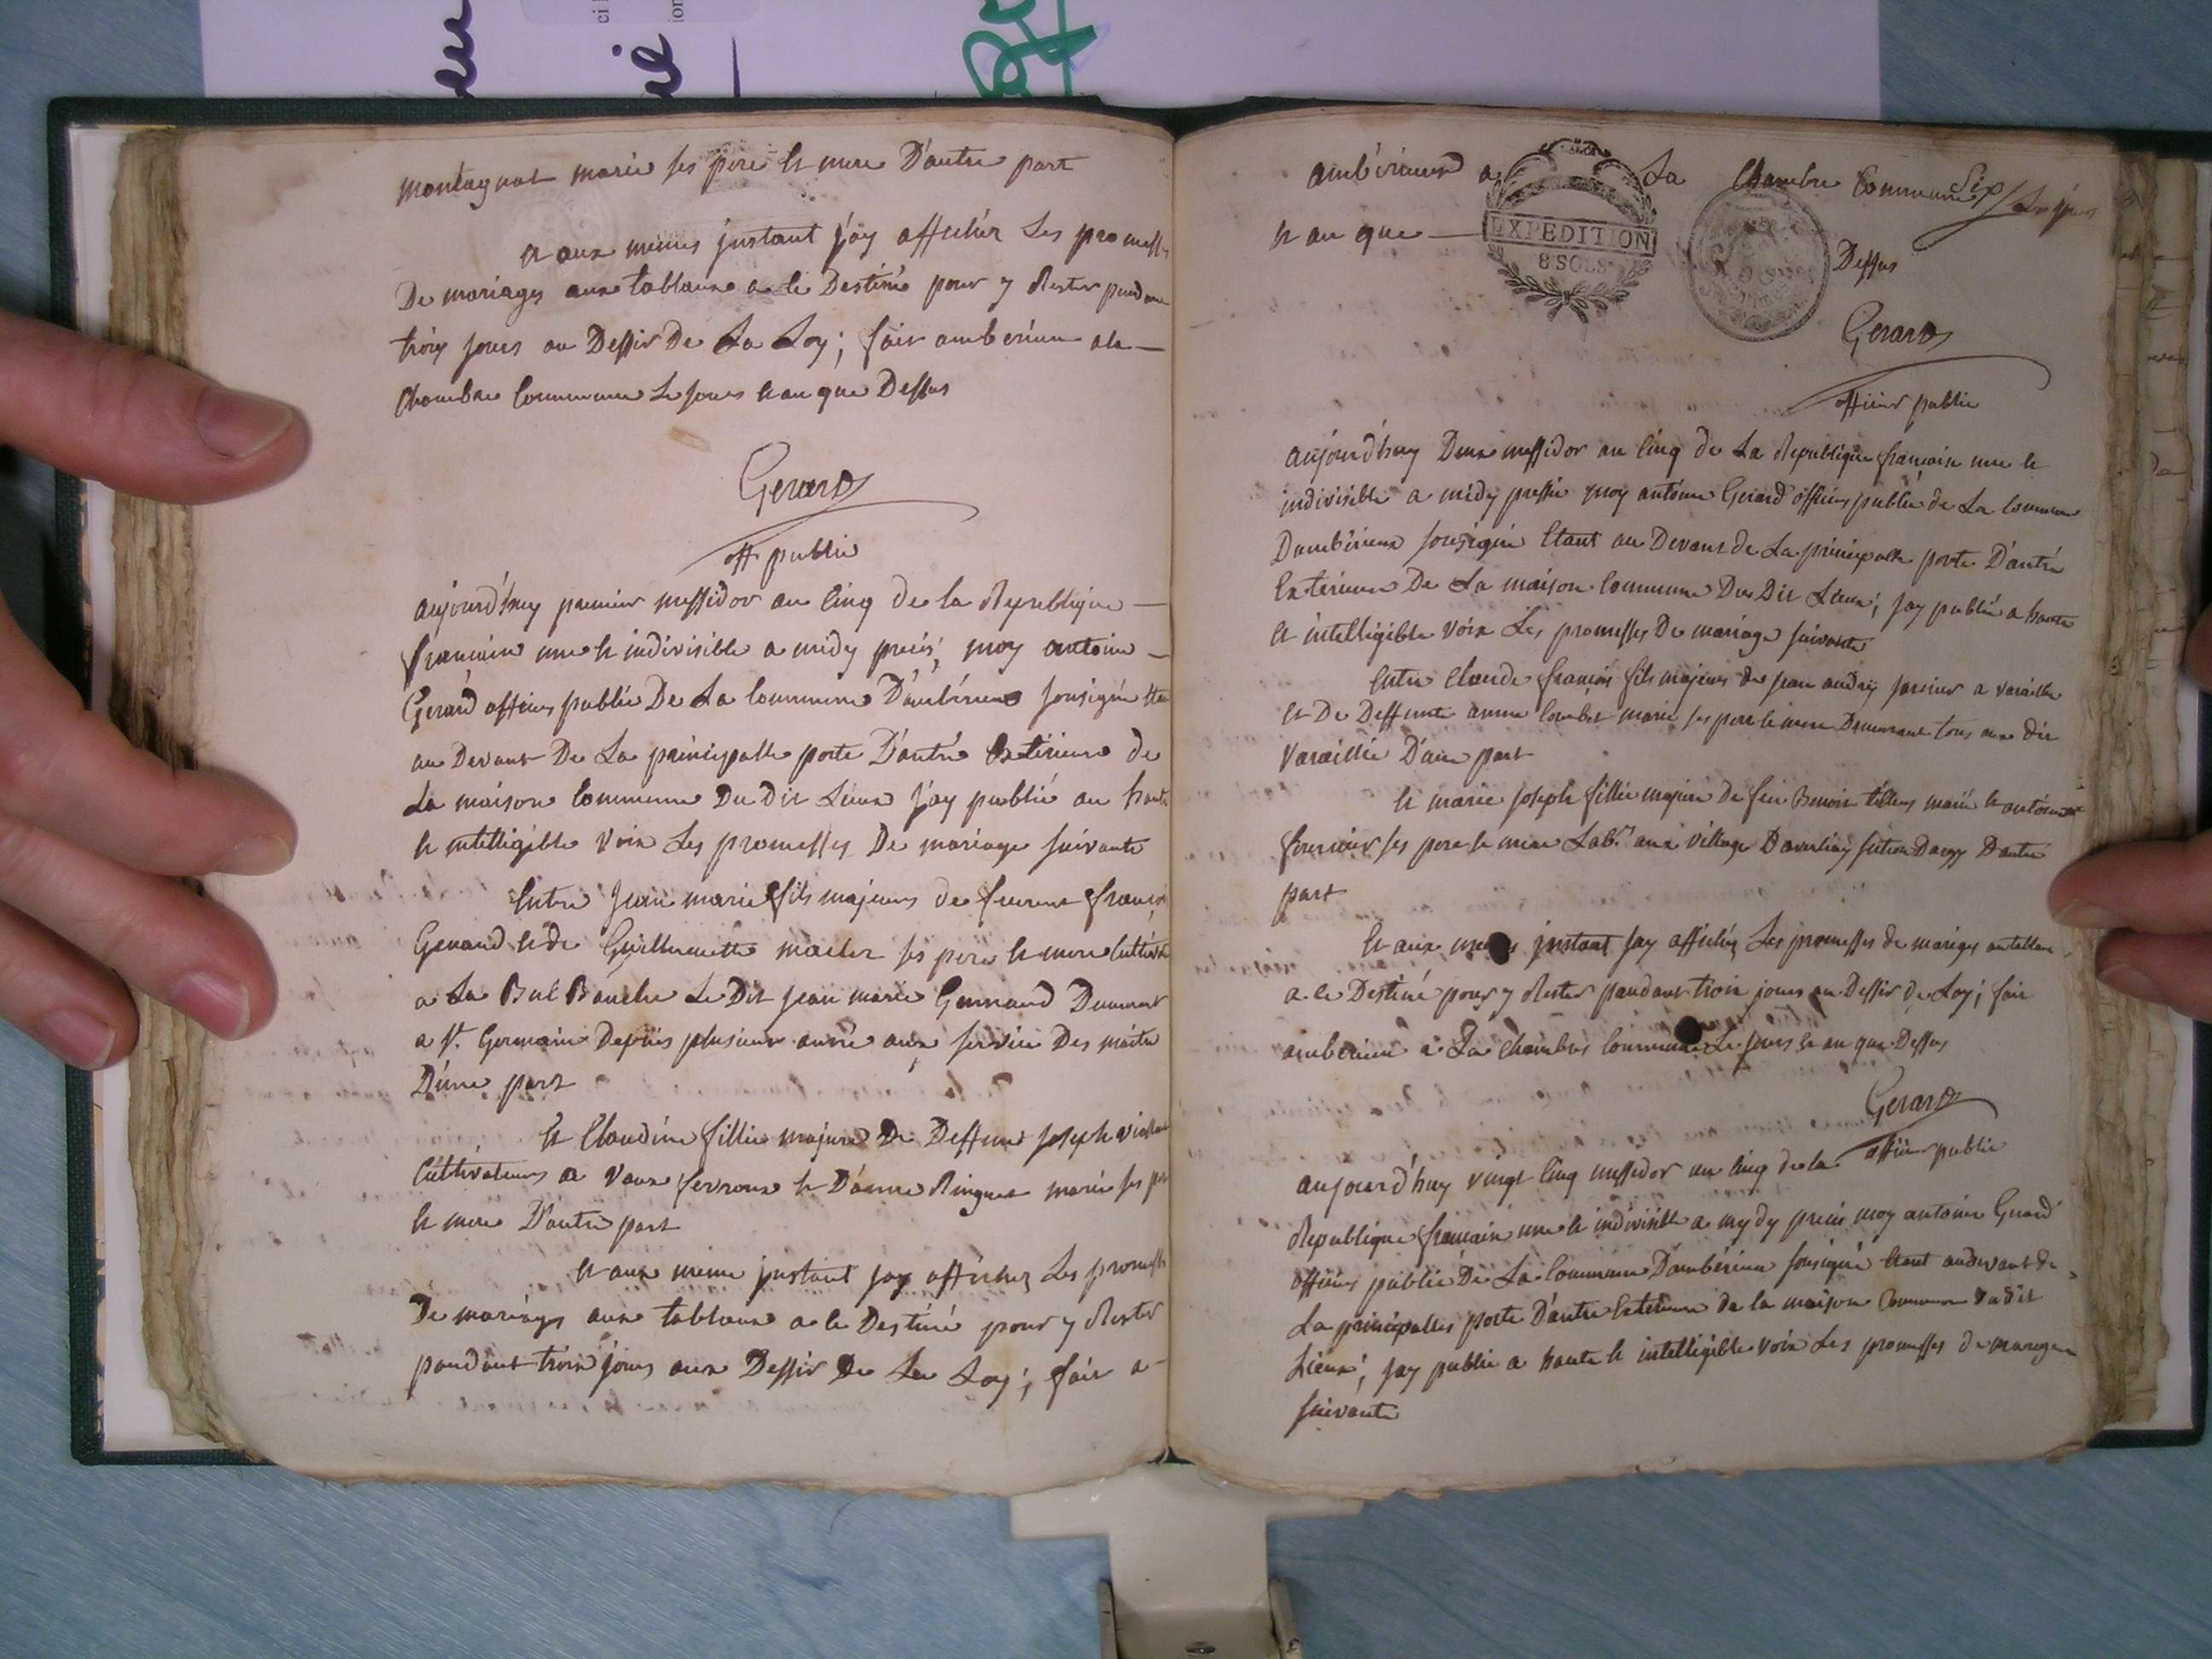 montagnat marié ses pere et mere D'autre part
et aux mêmes jnstant j'ay afficher Les promesses
De mariages aux tableaux a le Destiné pour y Rester pendant
trois jours au Dessir De La Loy; fair amberieux a la
Chambre Commune Le jours et an que Dessus
Gerard
off public
aujourd'huy premier messidor an cinq de la Republique
francaise une et indivisible a midy précis, moy antoine
Gerard officier public De La Commune D'ambérieux sousigné etant
au Devant De La principalle porte D'antré Exterieure de
La maison Commune Du Dit Lieux j'ay publié au haute
et intelligible voix Les promesses De mariage suivante
Entre Jean marie fils majeurs de feu françois
Genand et de Guillermette ses pere et mere Cultivateur
a La Bal Bauche Le Dit Jean marie Demeurant
a St. Germain Depuis plusieur anné aux service Des maitre
D'úne part
Et Claudine fillie majure De Deffunt Joseph
Cultivateurs a Vaux fevroux et D'anne Ringuet marié ses pere
et mere D'autre part
Et aux meme jnstant jay afficher Les promesses
De mariages aux tableaux a le Destiné pour y Rester
pandant trois jours aux Dessir De La Loy; fair a
ambérieux a La Chambre Commune Le jours
et an que Dessus
EXPEDITION
8 SOLS
Gerard
officier public
aujourd'huy Deux messidor an cinq de La Republique francaise une et
indivisible a midy pressie moy antoine Gerard officier public de La Commune
Dambérieux sousigné Etant au Devant de La principalle porte D'antré
Exterieure De La maison Commune Du Dit Lieux; jay publié a haute
et intelligible voix Les promesses De mariage suivante
Entre Claude françois fils majeurs de jean andré janier a varaillie
et De Deffunte anne Combet marié ses pere et mere Demeurant tous aux dit
Varaillie D'une part
Et marie joseph fillie majure de feu Benoit marié et antoinette
fournier ses pere et mere Lab.rs aux village section Dargy D'autre
part
Et aux memes jnstant jay affichés Les promesses de mariages
a le Destiné pour y Rester pandant trois jours au Dessir De Loy; fair
amberieu a La Chambre Commune Le jours et an que Dessus
Gerard
officier public
aujourd'huy vingt Cinq messidor an cinq de la
Republique francaise une et indivisible a mydy précis moy antoine Gerard
officier public De La Commune D'ambérieu sousigné Etant audevant de
La principalles porte D'antre Exterieure de la maison Commune dudit
Lieux; jay publié a haute et intelligible voix Les promesses de mariages
suivante